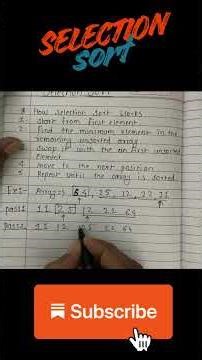 SELECTION
SORT
Selection Sort
* How selection sort works
1 Start from first element
2 Find the minimum element in the
remaining unsorted array
3 Swap it with the first unsorted
element
4 Move to the next position
5 Repeat until the array is sorted
Ex:- Array=> 64, 25, 12, 22, 11
Pass1 11 25 12 22 64
Pass2 11 12 25 22 64
Subscribe